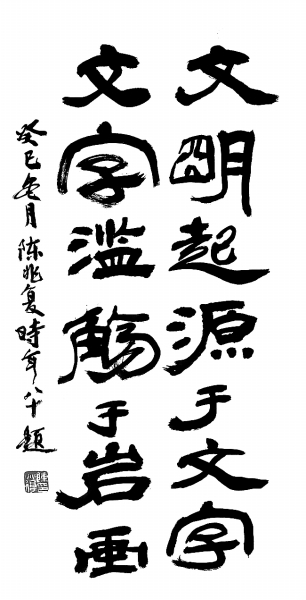 文明起源于文字
文字滥觞于岩画
癸巳冬月陈兆复時年八十題